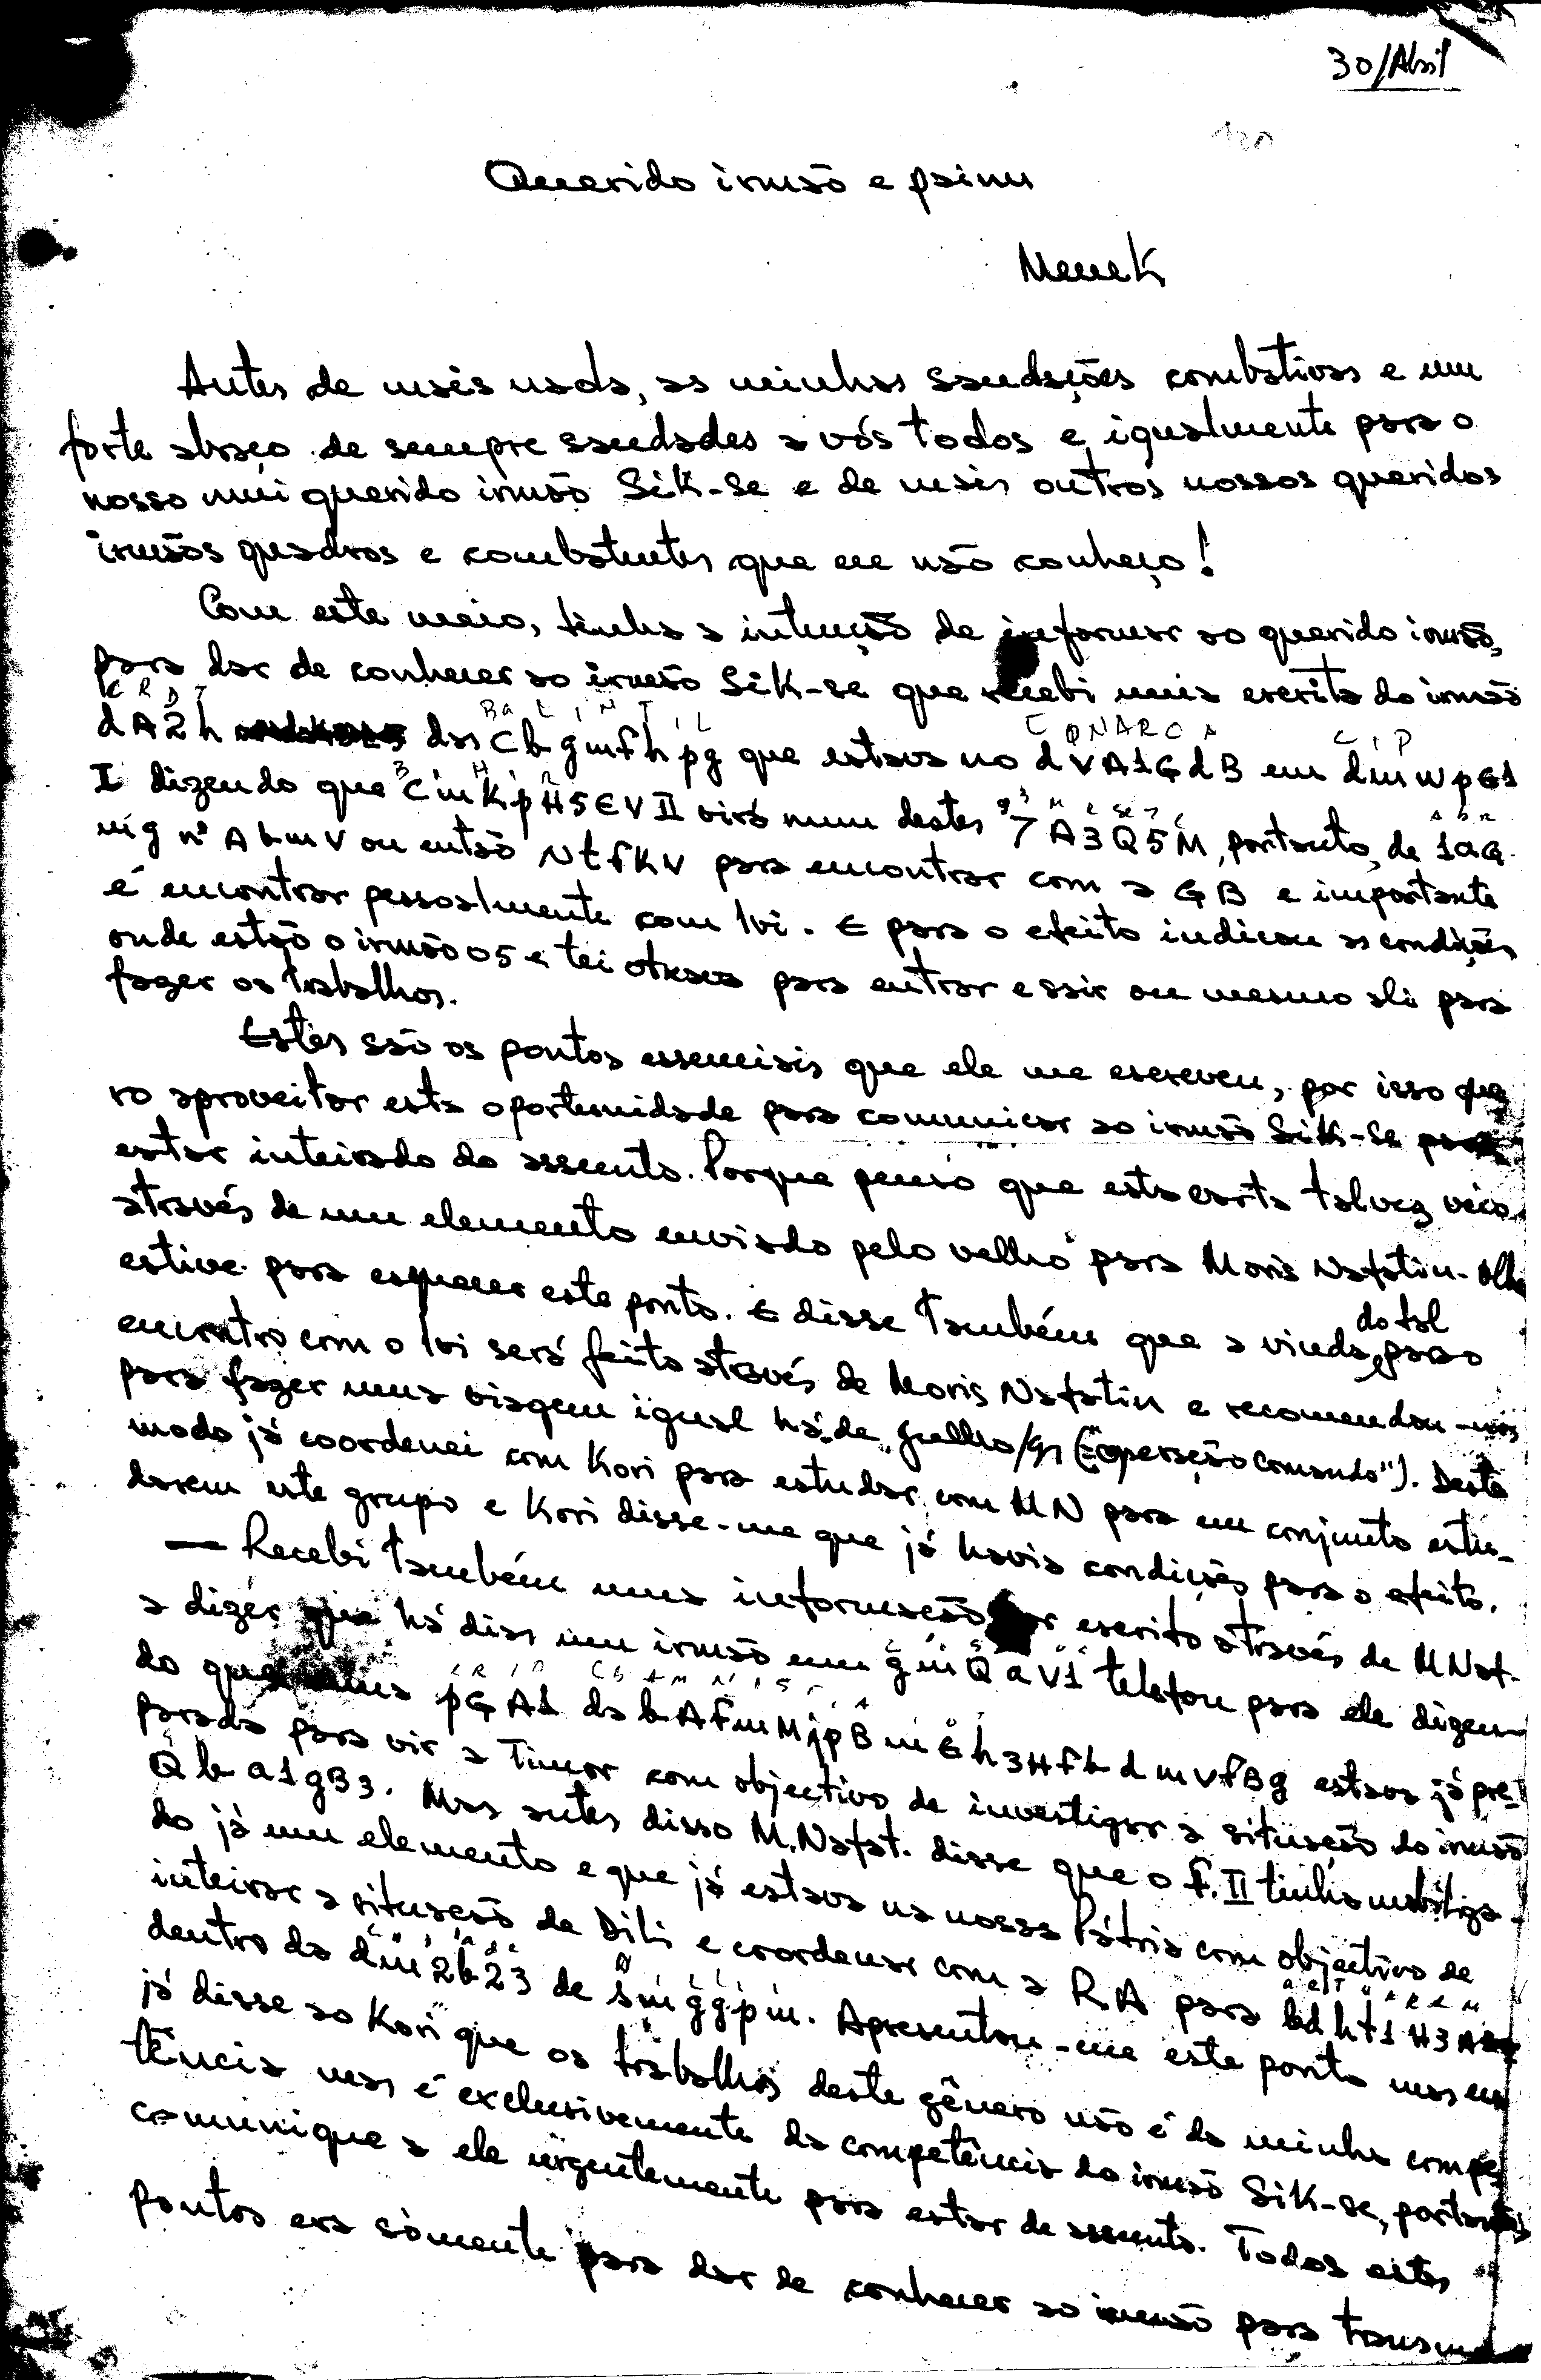 30/Abril
Querido irmão e painu
Meuek
Antes de mais nada, as minhas saudações combativas e um
forte abraço de sempre saudades a vós todos e igualmente para o
nosso mui querido irmão Sik-se e de mais outros nossos queridos
irmãos quadros e combatentes que eu não conheço!
Com este meio, tinha a intenção de informar ao querido irmão,
para dar de conhecer ao irmão Sik-se que recebi uma escrita do irmão
dA2h das que estava no dVA1GdB em
I dizendo que virá num destes 7A3Q5M, portanto, de 1aG.
ou então NtfKV para encontrar com a GB e importante
é encontrar pessoalmente com lvi. E para o efeito indicou as condições
onde estão o irmão 05 e para entrar e sair ou mesmo ali para
fazer os trabalhos.
Estes são os pontos essenciais que ele me escreveu, por isso que
ro aproveitar esta oportunidade para comunicar ao irmão Sik-se
estar inteirado do assunto. Porque penso que esta carta talvez
através de um elemento enviado pelo velho para Moris Nafatin.
estive para esquecer este ponto. E disse também que a vinda do tal para o
encontro com o lvi será feita através de Moris Nafatin e recomendou-nos
para fazer uma viagem igual há de ("operação Comando"). Deste
modo já coordenei com Kori para estudar com MN para em conjunto estu-
darem este grupo e Kori disse-me que já havia condições para o efeito.
— Recebi também uma informação por escrito através de MNaf.
a dizer que há dias um irmão em telefon para ele dizen-
do que uma pGA1 da estava já pre-
parada para vir a Timor com objectivo de investigar a situação do irmão
Qba1gB3. Mas antes disso M.Nafat. disse que o F.II tinha
do já um elemento e que já estava na nossa Pátria com objectivo de
inteirar a situação de Dili e coordenar com a R.A para
dentro da de . Apresentou-me este ponto mas eu
já disse ao Kori que os trabalhos deste género não é da minha compe
tência mas é exclusivamente da competência do irmão Sik-se, portanto
comunique a ele urgentemente para estar de assunto. Todos estes
pontos era sómente para dar de conhecer ao irmão para